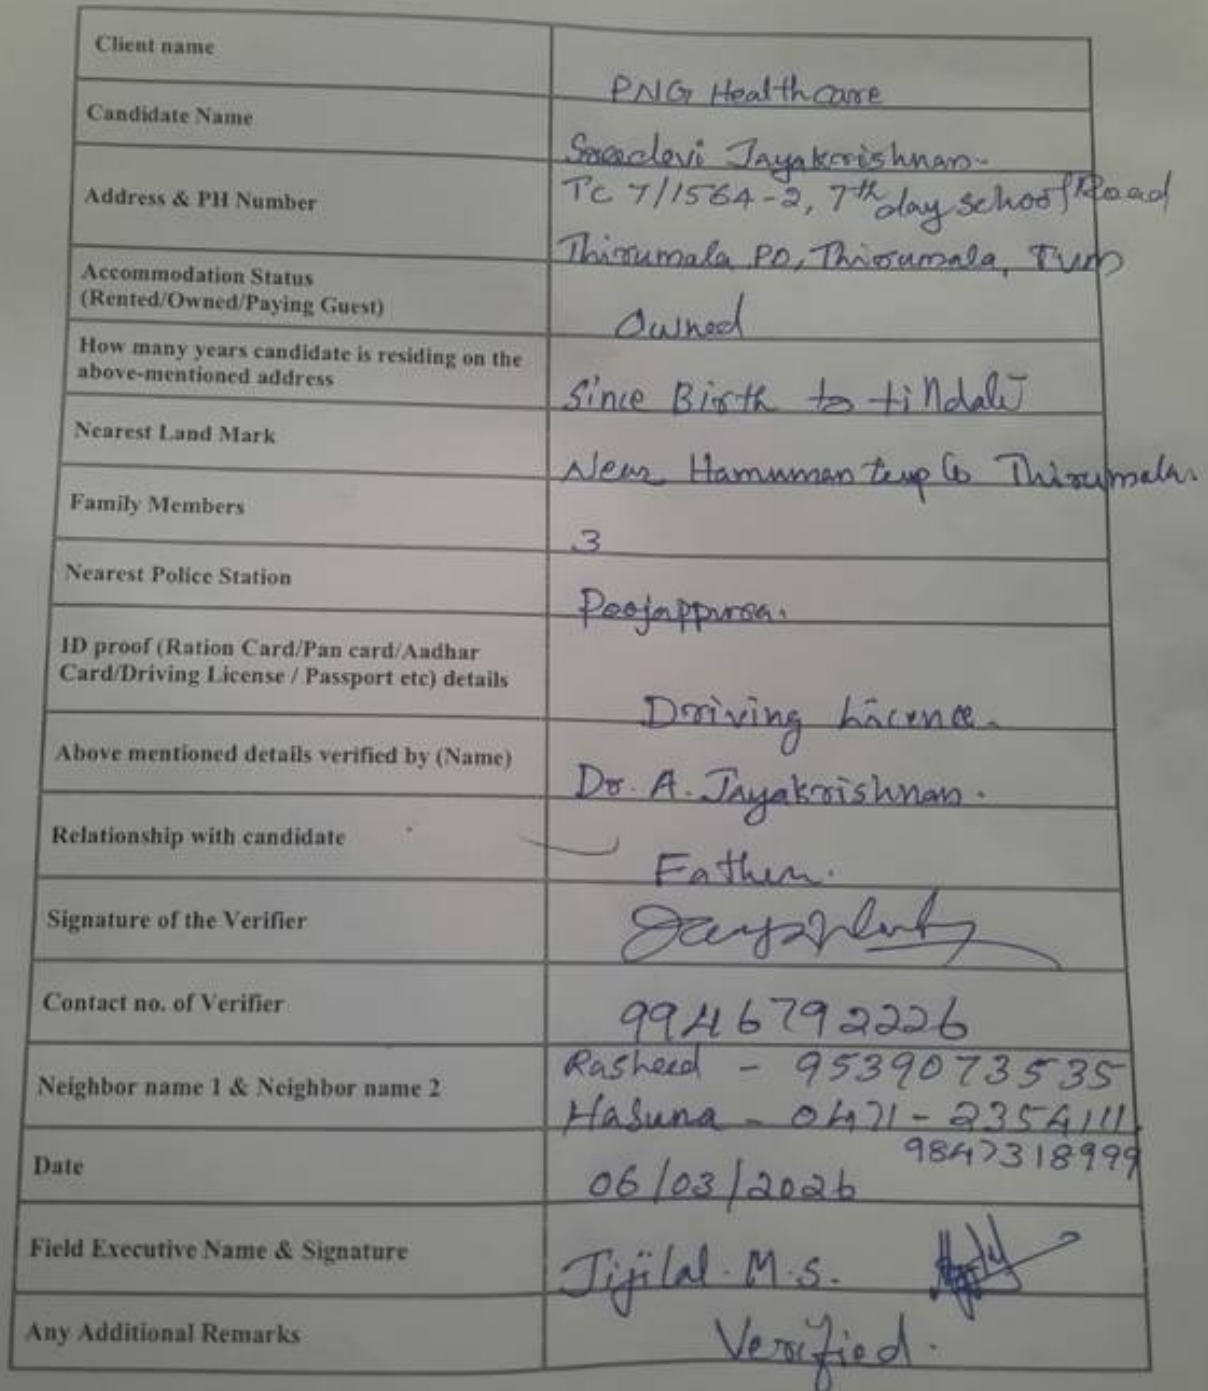 Client name
PNG Healthcare
Candidate Name
Sreedevi Jayakrishnan
Address & PH Number
TC 7/1564-2, 7th day school Road
Thirumala PO, Thirumala, Tvm
Accommodation Status
(Rented/Owned/Paying Guest)
Owned
How many years candidate is residing on the
above-mentioned address
Since Birth to till date
Nearest Land Mark
Near Hanuman temple Thirumala.
Family Members
3
Nearest Police Station
Poojappura.
ID proof (Ration Card/Pan card/Aadhar
Card/Driving License / Passport etc) details
Driving Licence.
Above mentioned details verified by (Name)
Dr. A. Jayakrishnan.
Relationship with candidate
Father.
Signature of the Verifier
Contact no. of Verifier
9946792226
Neighbor name 1 & Neighbor name 2
Rasheed - 9539073535
Hasuna - 0471-2354111
9847318999
Date
06/03/2026
Field Executive Name & Signature
Jijilal. M.S.
Any Additional Remarks
Verified.